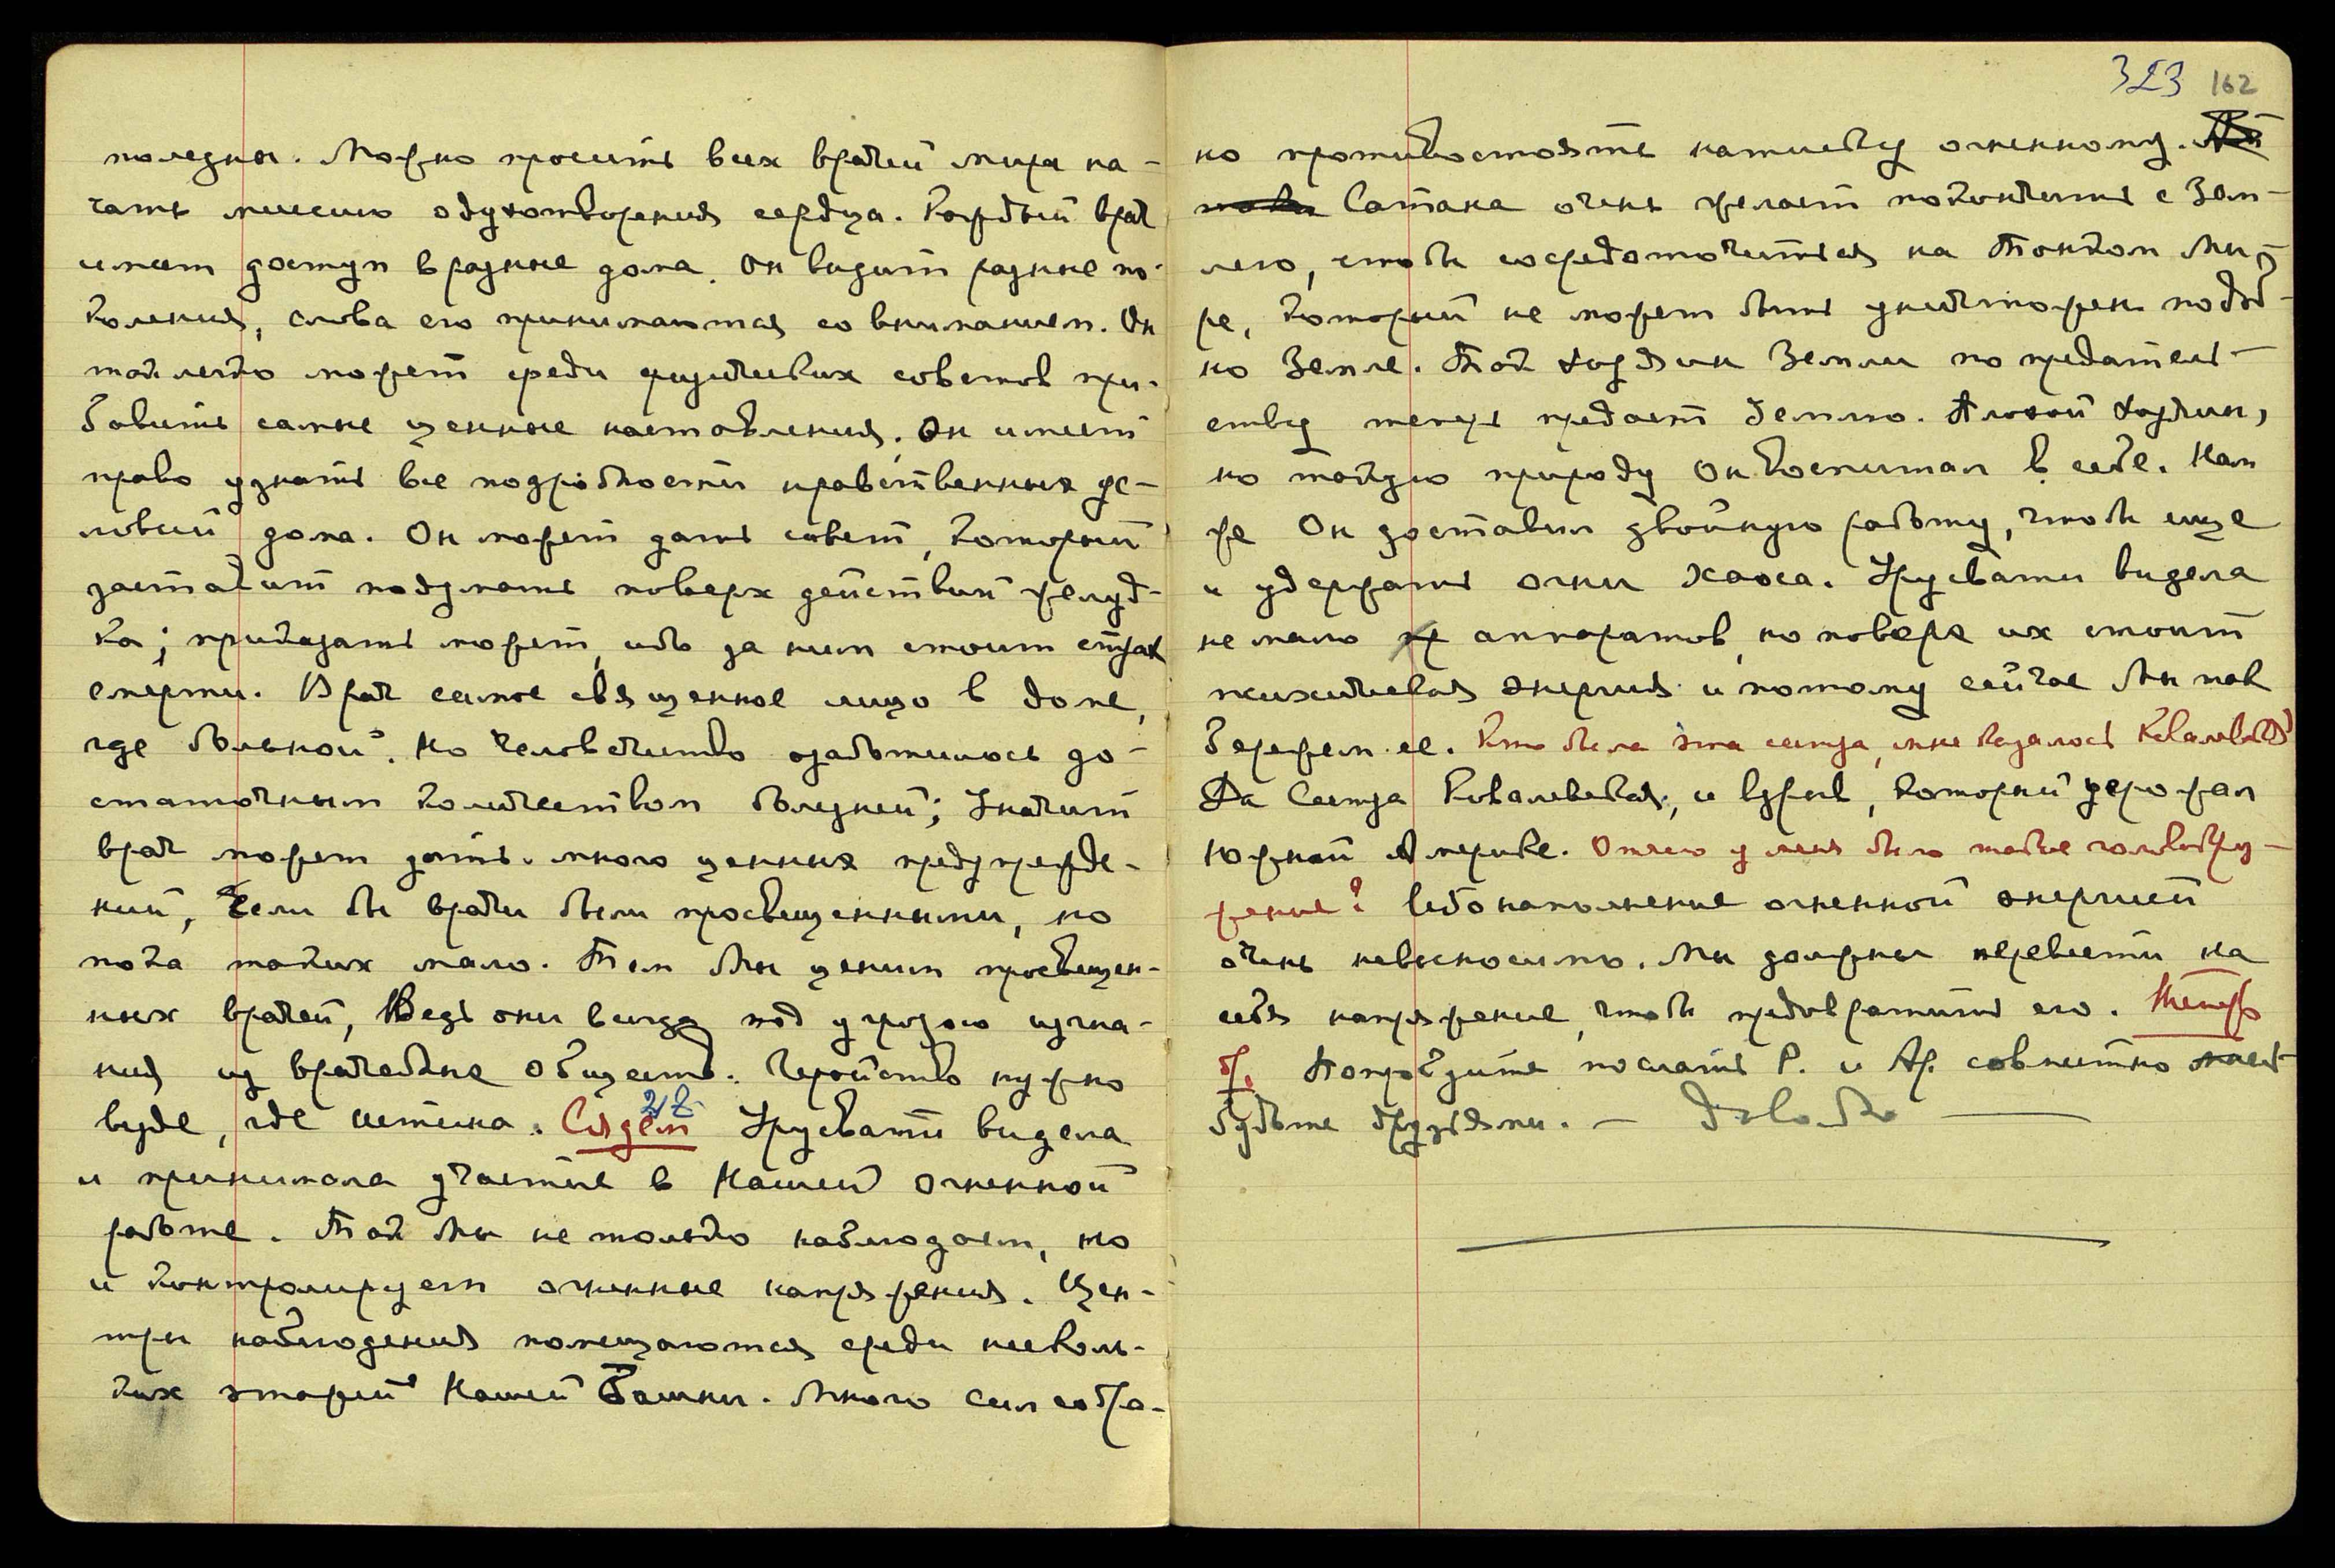 полезны. Можно просить всех врачей мира на-
чать миссию одухотворения сердца. Каждый врач
имеет доступ в разные дома. Он видит разные по-
коления, слова его принимаются со вниманием. Он
так легко может среди физических советов при-
бавить самые ценные наставления. Он имеет
право узнать все подробности нравственных ус-
ловий дома. Он может дать совет, который
заставит подумать поверх действий желуд-
ка; приказать может, ибо за ним стоит страх
смерти. Врач самое священное лицо в доме,
где больной. Но человечество озаботилось до-
статочным количеством болезней; Значит
врач может дать много ценных предупрежде-
ний, Если бы врачи были просвещенными, но
пока таких мало. Тем Мы ценим просвещен-
ных врачей, Ведь они всегда под угрозою изгна-
ния из врачебных Обществ. Геройство нужно
всюде, где истина. Сядем Урусвати видела
и принимала участие в Нашей огненной
работе. Так Мы не только наблюдаем, но
и контролируем огненные напряжения. Цен-
тры наблюдения помещаются среди несколь-
ких этажей Нашей Башни. Много сил собра-
323 162
но противостоять натиску огненному.
Сатана очень желает покончить с Зем-
лею, чтобы сосредоточиться на Тонком Ми-
ре, который не может быть уничтожен подоб-
но Земле. Так хозяин Земли по предатель-
ству теперь предает Землю. Плохой хозяин,
но такую природу Он воспитал в себе. Нам
же Он доставил двойную работу, чтобы еще
и удержать огни хаоса. Урусвати видела
не мало аппаратов, но поверх их стоит
психическая энергия и потому сейчас Мы так
бережем ее. Кто была эта сестра, мне казалось Ковалевская
Да Сестра Ковалевская, и взрыв, который угрожал
Южной Америке. Отчего у меня было такое головокру-
жение? Ибо наполнение огненной энергией
очень невыносимо. Мы должны перевести на
себя напряжение, чтобы предотвратить его. Теперь
Попробуйте послать Р. и Ар. совместно
будьте друзьями. — Довольно —